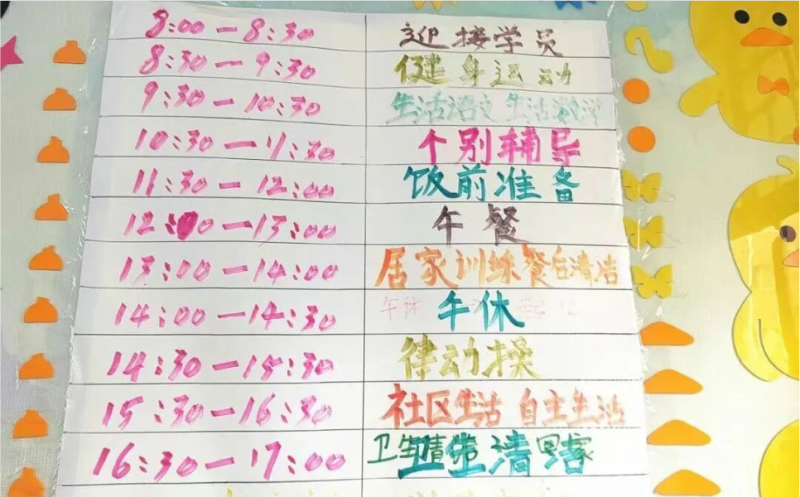 8:00—8:30 迎接学员
8:30—9:30 健身运动
9:30—10:30 生活语文 生活数学
10:30—11:30 个别辅导
11:30—12:00 饭前准备
12:00—13:00 午餐
13:00—14:00 居家训练 餐后清洁
14:00—14:30 午休
14:30—15:30 律动操
15:30—16:30 社区生活 自主生活
16:30—17:00 卫生清洁 回家